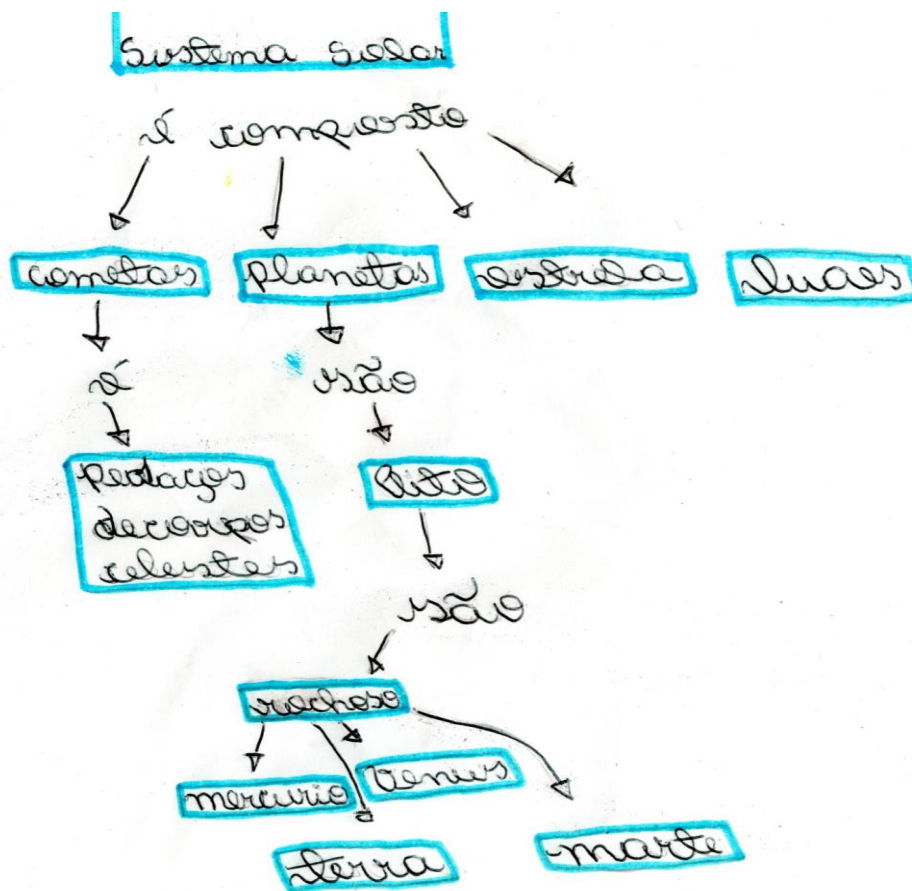 Sistema Solar
é composto
cometas planetas estrela luaes
é são
pedaços oito
de corpos
celestes
são
rochoso
mercurio Venus
terra marte